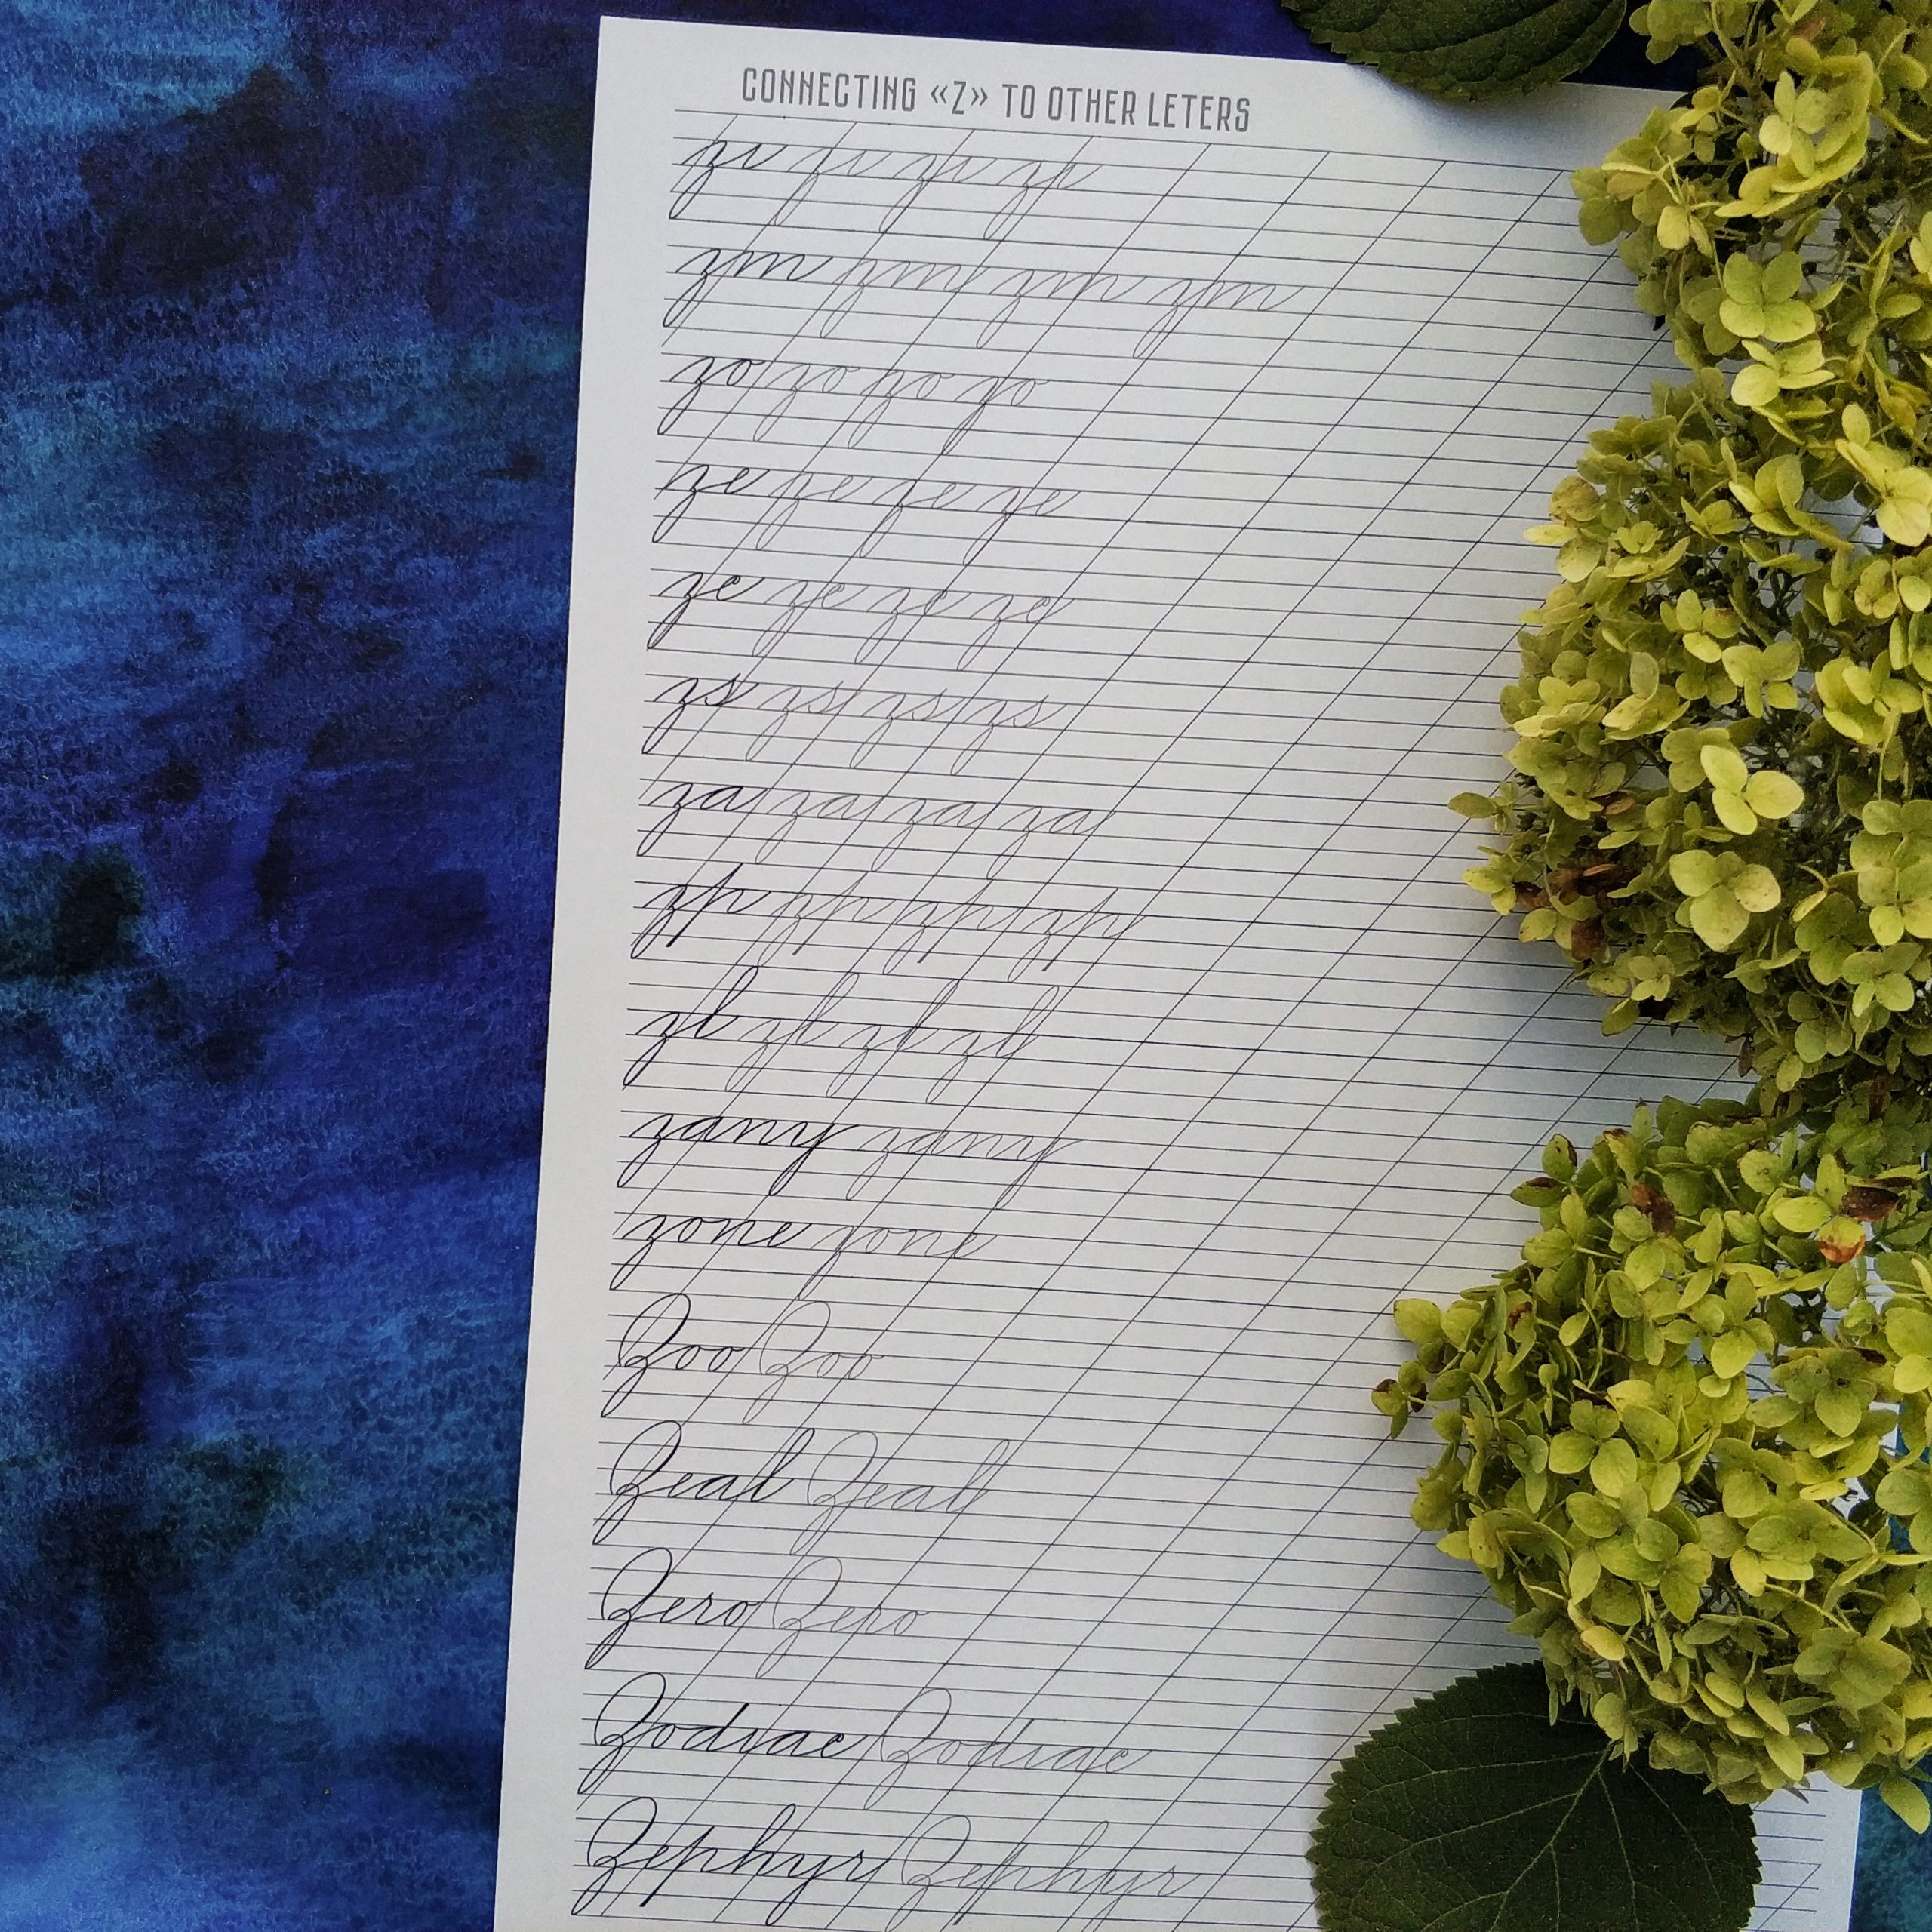 CONNECTING «Z» TO OTHER LETERS
zi zi zi zi
zm zm zm zm
zo zo zo zo
ze ze ze ze
zc zc zc zc
zs zs zs zs
za za za za
zp zp zp zp
zl zl zl zl
zany zany
zone zone
Zoo Zoo
Zeal Zeal
Zero Zero
Zodiac Zodiac
Zephyr Zephyr